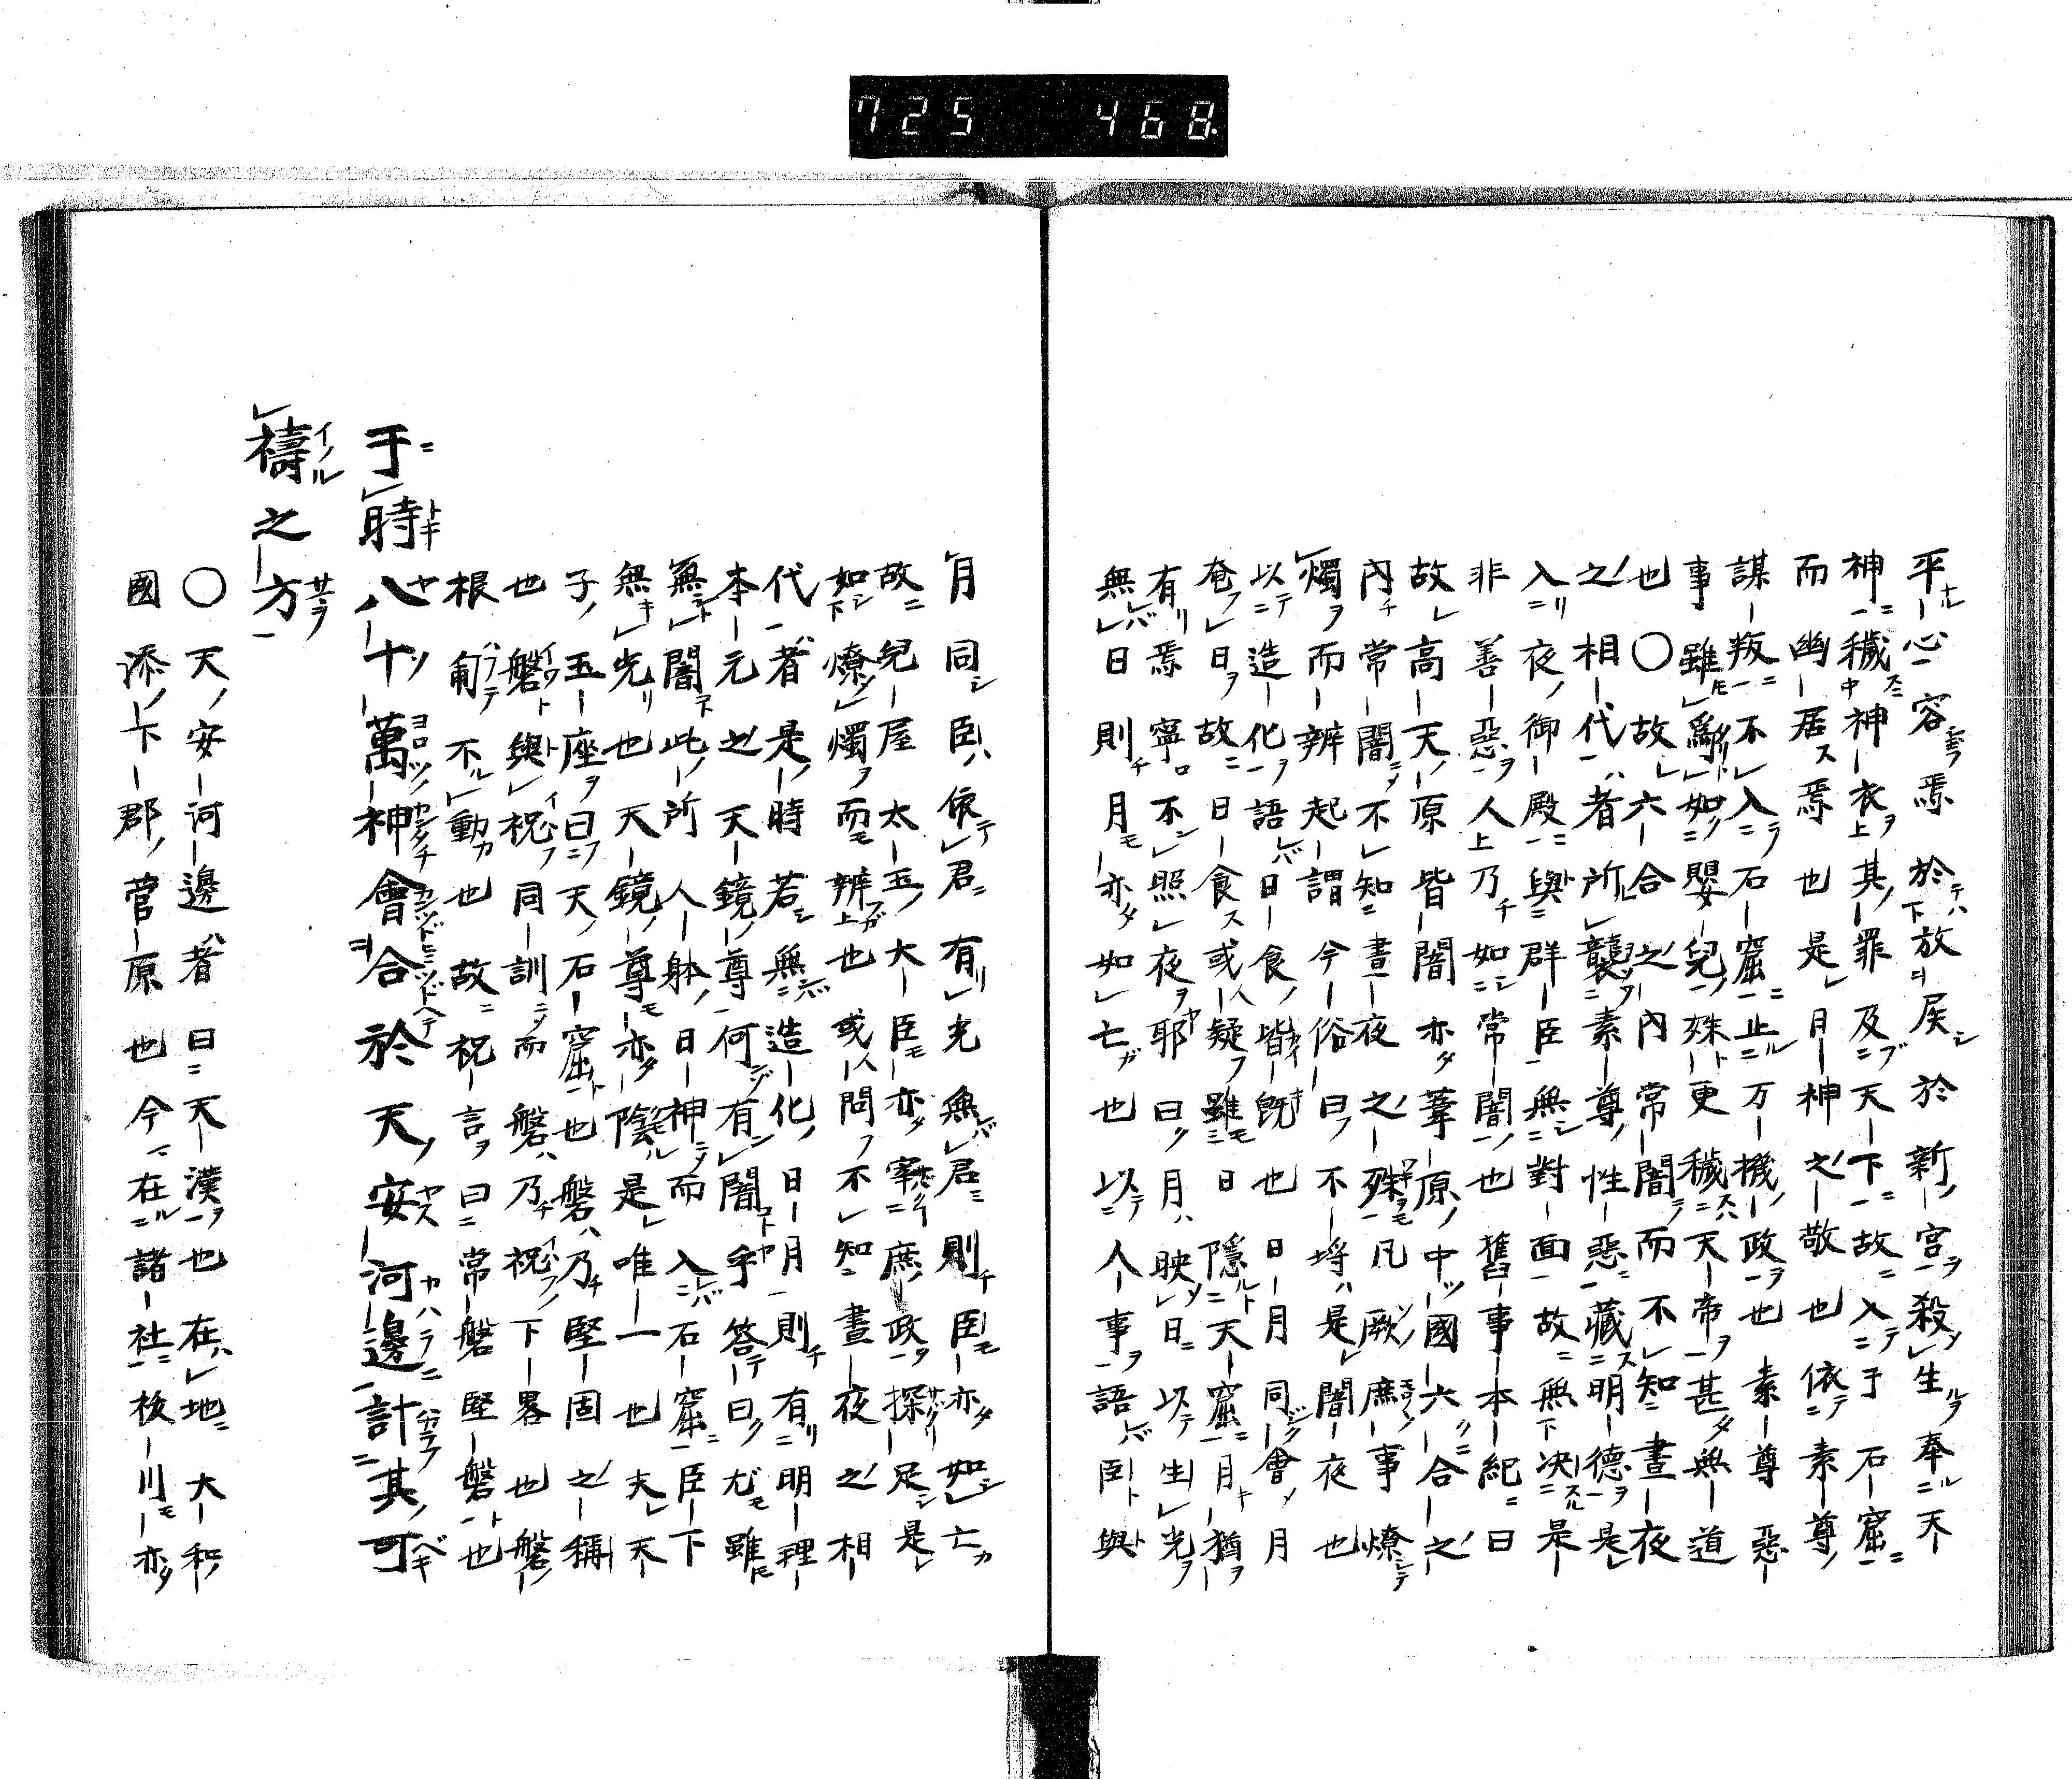 725 468
平心容焉於放屎於新宮殺生奉天
神穢神衣其罪及天下故入于石窟
而幽居焉也是月神之敬也依素尊
謀叛不入石窟止万機政也素尊惡
事雖爲如嬰兒殊更穢天帝甚無道
也〇故六合之內常闇而不知晝夜
之相代者所襲素尊性惡藏明德是
入夜御殿與群臣無對面故無決是
非善惡人乃如常闇也舊事本紀曰
故高天原皆闇亦葦原中國六合之
內常闇不知晝夜之殊凡厥庶事燎
燭而辨起謂今俗曰不埒是闇夜也
以造化語日食皆既也日月同會月
奄日故日食或疑雖日隱天窟月猶
有焉寧不照夜耶曰月映日以生光
無日則月亦如亡也以人事語臣與
月同臣依君有光無君則臣亦如亡
故兒屋太玉大臣亦宰庶政探足是
如燎燭而辨也或問不知晝夜之相
代者是時若無造化日月則有明理
本元之天鏡尊何有闇乎答曰尤雖
無闇此所人躰日神而入石窟臣下
無光也天鏡尊亦陰是唯一也夫天
子玉座曰天石窟也磐乃堅固之稱
也磐與祝同訓而磐乃祝下畧也磐
根䔍不動也故祝言曰常磐堅磐也
于時八十萬神會合於天安河邊計其可
禱之方
〇天安河邊者曰天漢也在地大和
國添下郡菅原也今在諸社枝川亦